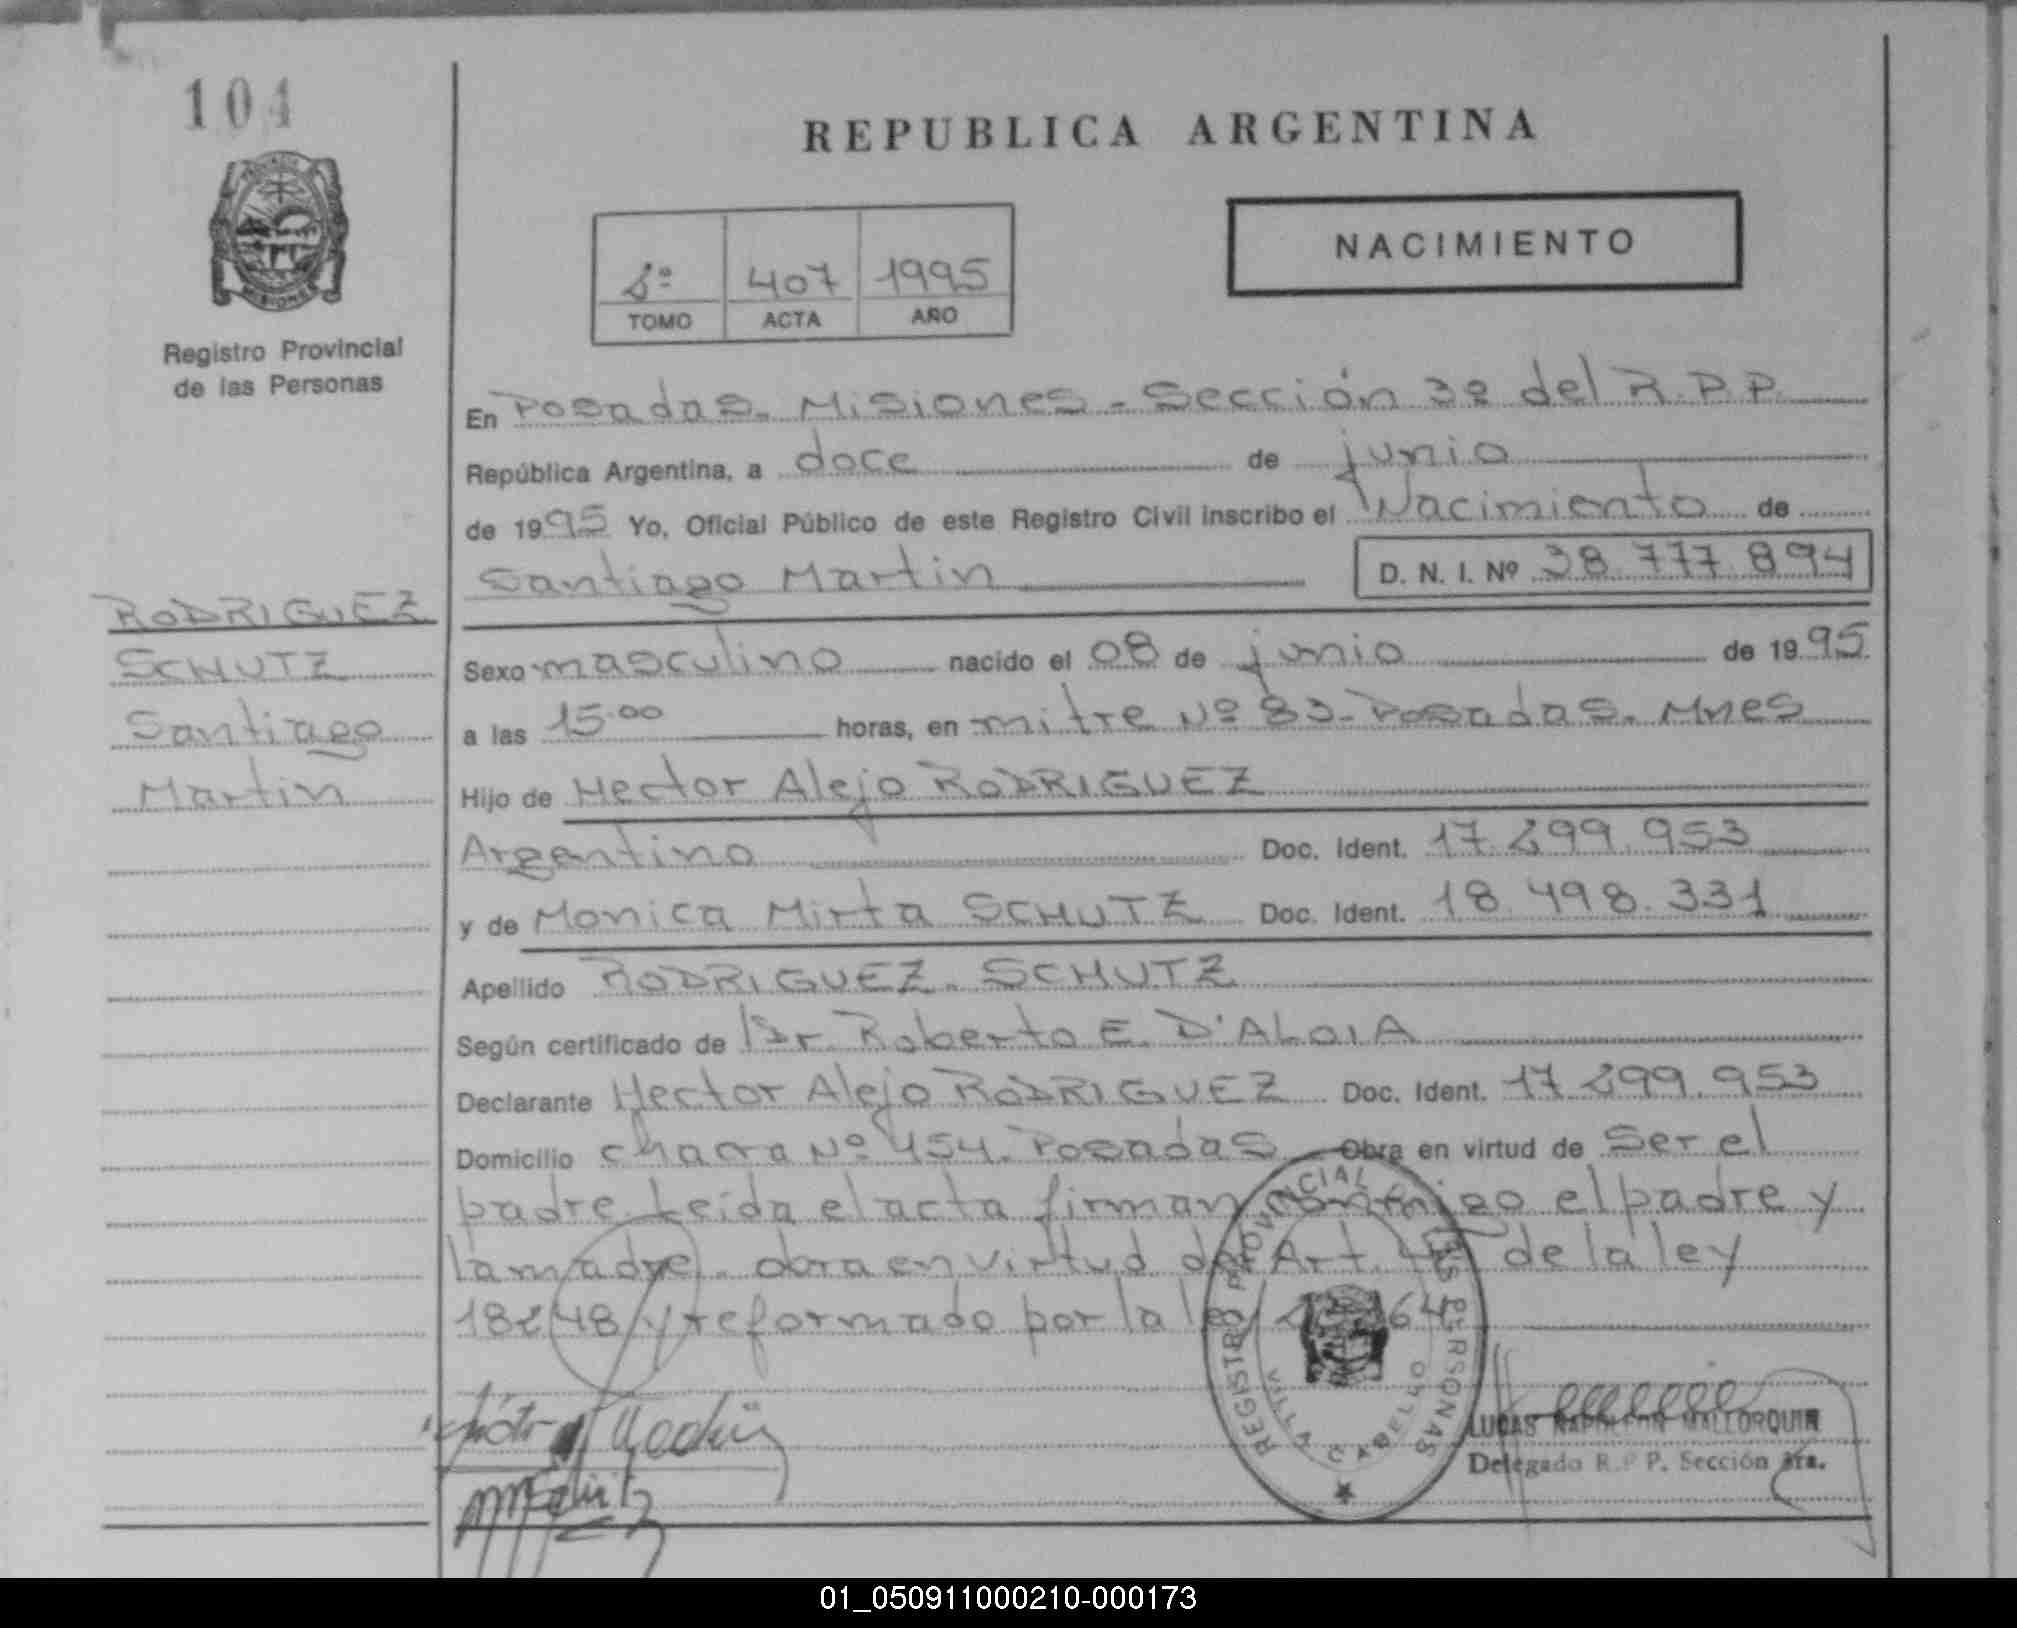 104
REPUBLICA ARGENTINA
NACIMIENTO
2º 407 1995
TOMO ACTA AÑO
MISIONES
Registro Provincial
de las Personas
En Posadas. Misiones - Sección 3º del R.P.P.
República Argentina, a doce de junio
de 1995 Yo, Oficial Público de este Registro Civil inscribo el Nacimiento de
Santiago Martin D. N. I. Nº 38.777.894
RODRIGUEZ
SCHUTZ
Santiago
Martin
Sexo masculino nacido el 08 de junio de 1995
a las 15.00 horas, en mitre Nº 83 - Posadas. Mnes
Hijo de Hector Alejo RODRIGUEZ
Argentino Doc. Ident. 17.299.953
y de Monica Mirta SCHUTZ Doc. Ident. 18.498.331
Apellido RODRIGUEZ. SCHUTZ
Según certificado de Dr. Roberto E. D'ALOIA
Declarante Hector Alejo RODRIGUEZ Doc. Ident. 17.299.953
Domicilio chacra Nº 454. Posadas Obra en virtud de Ser el
padre. Leida el acta firman conmigo el padre y
la madre. obra en virtud del Art. de la ley
18248 y reformado por la ley
REGISTRO PROVINCIAL DE LAS PERSONAS
VILLA CABELLO
LUCAS NAPOLEON MALLORQUIN
Delegado R.P.P. Sección 3ra.
01_050911000210-000173